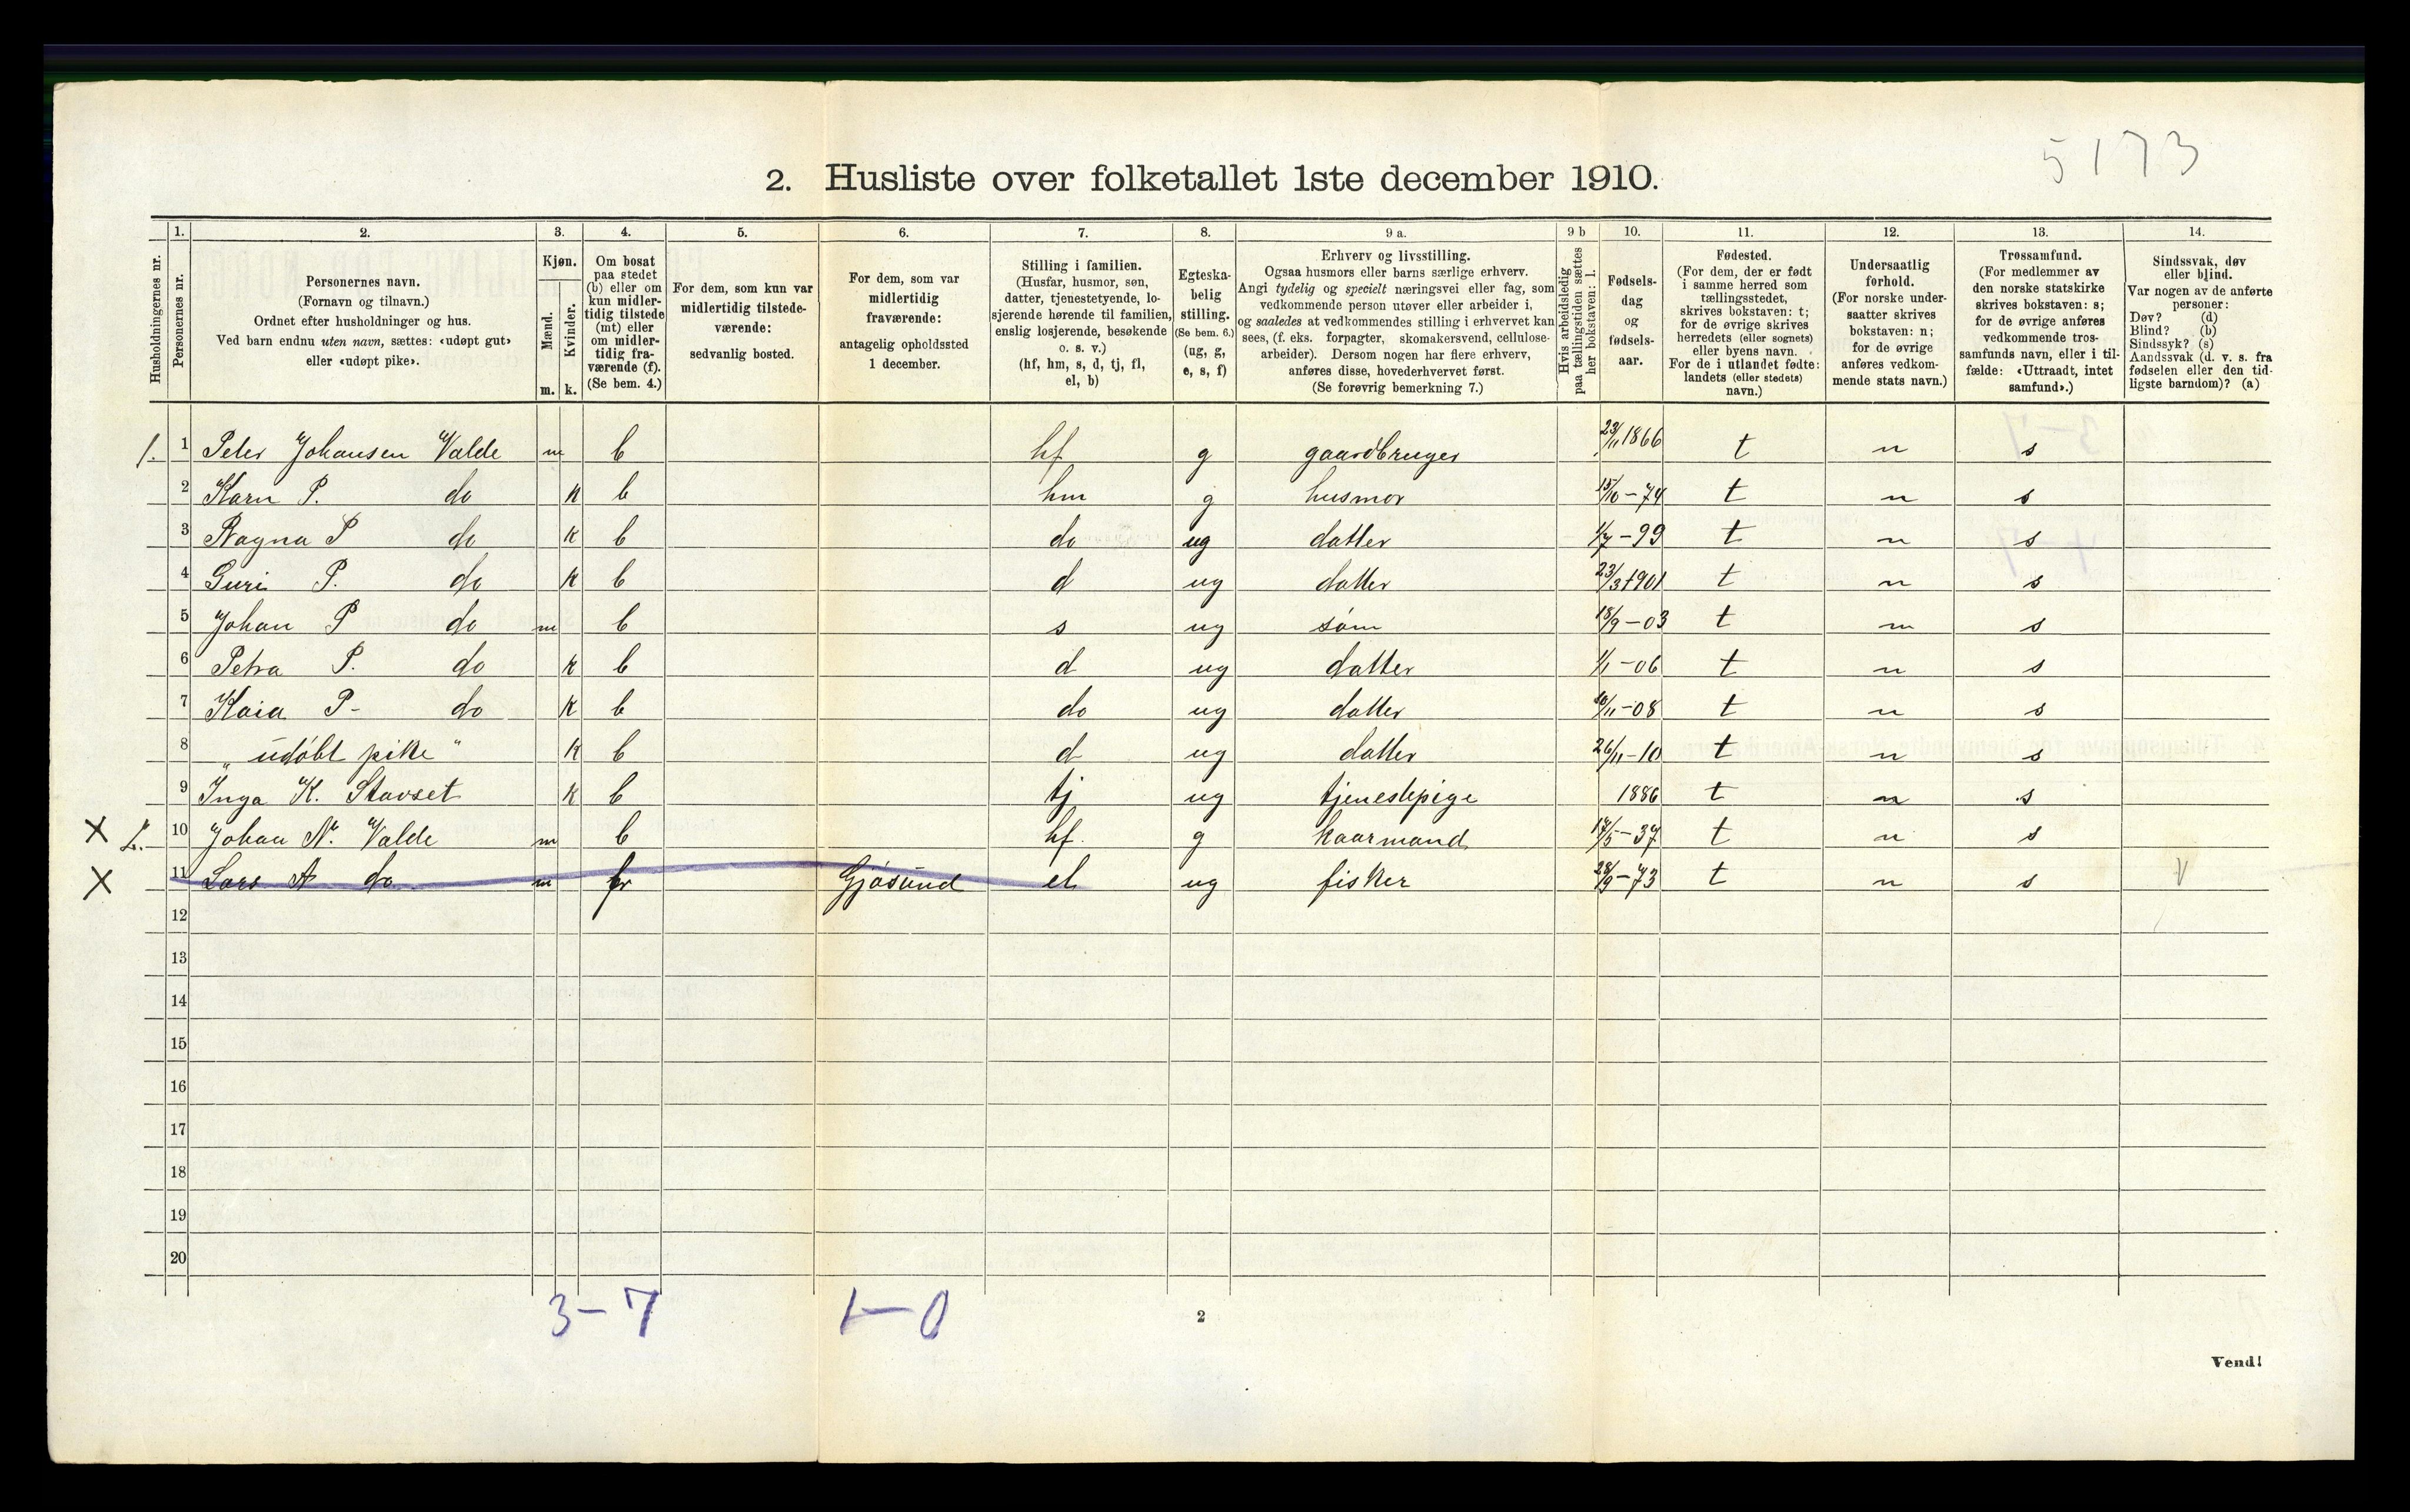 5173
2. Husliste over folketallet 1ste december 1910.
Husholdningernes nr.
1. Personernes nr.
2. Personernes navn.
(Fornavn og tilnavn.)
Ordnet efter husholdninger og hus.
Ved barn endnu uten navn, sættes: «udøpt gut»
eller «udøpt pike».
3. Kjøn.
Mænd. m.
Kvinder. k.
4. Om bosat
paa stedet
(b) eller om
kun midler-
tidig tilstede
(mt) eller
om midler-
tidig fra-
værende (f).
(Se bem. 4.)
5. For dem, som kun var
midlertidig tilstede-
værende:
sedvanlig bosted.
6. For dem, som var
midlertidig
fraværende:
antagelig opholdssted
1 december.
7. Stilling i familien.
(Husfar, husmor, søn,
datter, tjenestetyende, lo-
sjerende hørende til familien,
enslig losjerende, besøkende
o. s. v.)
(hf, hm, s, d, tj, fl,
el, b)
8. Egteska-
belig
stilling.
(Se bem. 6.)
(ug, g,
e, s, f)
9 a. Erhverv og livsstilling.
Ogsaa husmors eller barns særlige erhverv.
Angi tydelig og specielt næringsvei eller fag, som
vedkommende person utøver eller arbeider i,
og saaledes at vedkommendes stilling i erhvervet kan
sees, (f. eks. forpagter, skomakersvend, cellulose-
arbeider). Dersom nogen har flere erhverv,
anføres disse, hovederhvervet først.
(Se forøvrig bemerkning 7.)
9 b Hvis arbeidsledig
paa tællingstiden sættes
her bokstaven: l.
10. Fødsels-
dag
og
fødsels-
aar.
11. Fødested.
(For dem, der er født
i samme herred som
tællingsstedet,
skrives bokstaven: t;
for de øvrige skrives
herredets (eller sognets)
eller byens navn.
For de i utlandet fødte:
landets (eller stedets)
navn.)
12. Undersaatlig
forhold.
(For norske under-
saatter skrives
bokstaven: n;
for de øvrige
anføres vedkom-
mende stats navn.)
13. Trossamfund.
(For medlemmer av
den norske statskirke
skrives bokstaven: s;
for de øvrige anføres
vedkommende tros-
samfunds navn, eller i til-
fælde: «Uttraadt, intet
samfund».)
14. Sindssvak, døv
eller blind.
Var nogen av de anførte
personer:
Døv? (d)
Blind? (b)
Sindssyk? (s)
Aandssvak (d. v. s. fra
fødselen eller den tid-
ligste barndom)? (a)
1. 1 Peter Johansen Valde m b hf g gaardbruger 23/11 1866 t n s
2 Karn P. do k b hm g husmor 15/10-74 t n s
3 Ragna P do k b do ug datter 1/7-99 t n s
4 Guri P. do k b d ug datter 23/3 1901 t n s
5 Johan P do m b s ug søm 18/9-03 t n s
6 Petra P. do k b d ug datter 1/1-06 t n s
7 Kaia P- do k b do ug datter 10/11-08 t n s
8 „udøbt pike" k b d ug datter 26/11-10 t n s
9 Inga K. Stavset k b tj ug tjenestepige 1886 t n s
X 2. 10 Johan N. Valde m b hf. g kaarmand 17/5-37 t n s
X 11 Lars A do m fr Gjøsund el ug fisker 28/9-73 t n s
12
13
14
15
16
17
18
19
20
3-7 1-0
2
Vend!